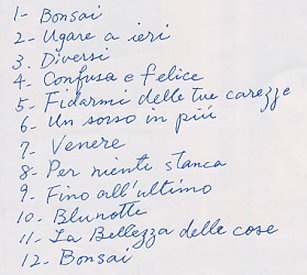 1- Bonsai
2- Ugare a ieri
3. Diversi
4. Confusa e felice
5- Fidarmi delle tue carezze
6- Un sorso in più
7- Venere
8- Per niente stanca
9. Fino all'ultimo
10- Blunotte
11- La Bellezza delle cose
12- Bonsai